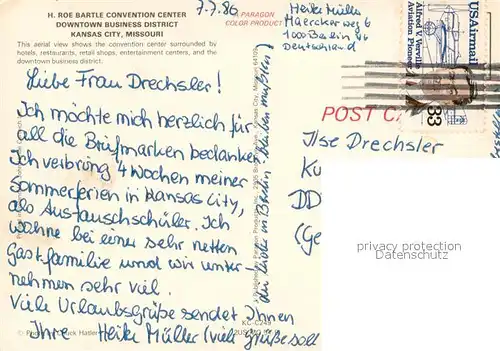 H. ROE BARTLE CONVENTION CENTER
DOWNTOWN BUSINESS DISTRICT
KANSAS CITY, MISSOURI
This aerial view shows the convention center surrounded by
hotels, restaurants, retail shops, entertainment centers, and the
downtown business district.
7.7.86
PARAGON
COLOR PRODUCT
Heike Müller
Maercker weg 6
1000 Berlin 46
Deutschland
USAirmail
Alfred V. Verville
Aviation Pioneer
33
Liebe Frau Drechsler!
Ich möchte mich herzlich für
all die Briefmarken bedanken.
Ich verbring 4 Wochen meiner
Sommerferien in Kansas City,
als Austauschschüler. Ich
wohne bei einer sehr netten
Gastfamilie und wir unter-
nehmen sehr viel.
Viele Urlaubsgrüße sendet Ihnen
Ihre Heike Müller (viele Grüße soll
POST CA
Ilse Drechsler
Ku
DD
(Ge
privacy protection
ansichtskarten-lexikon.de
KC-C249